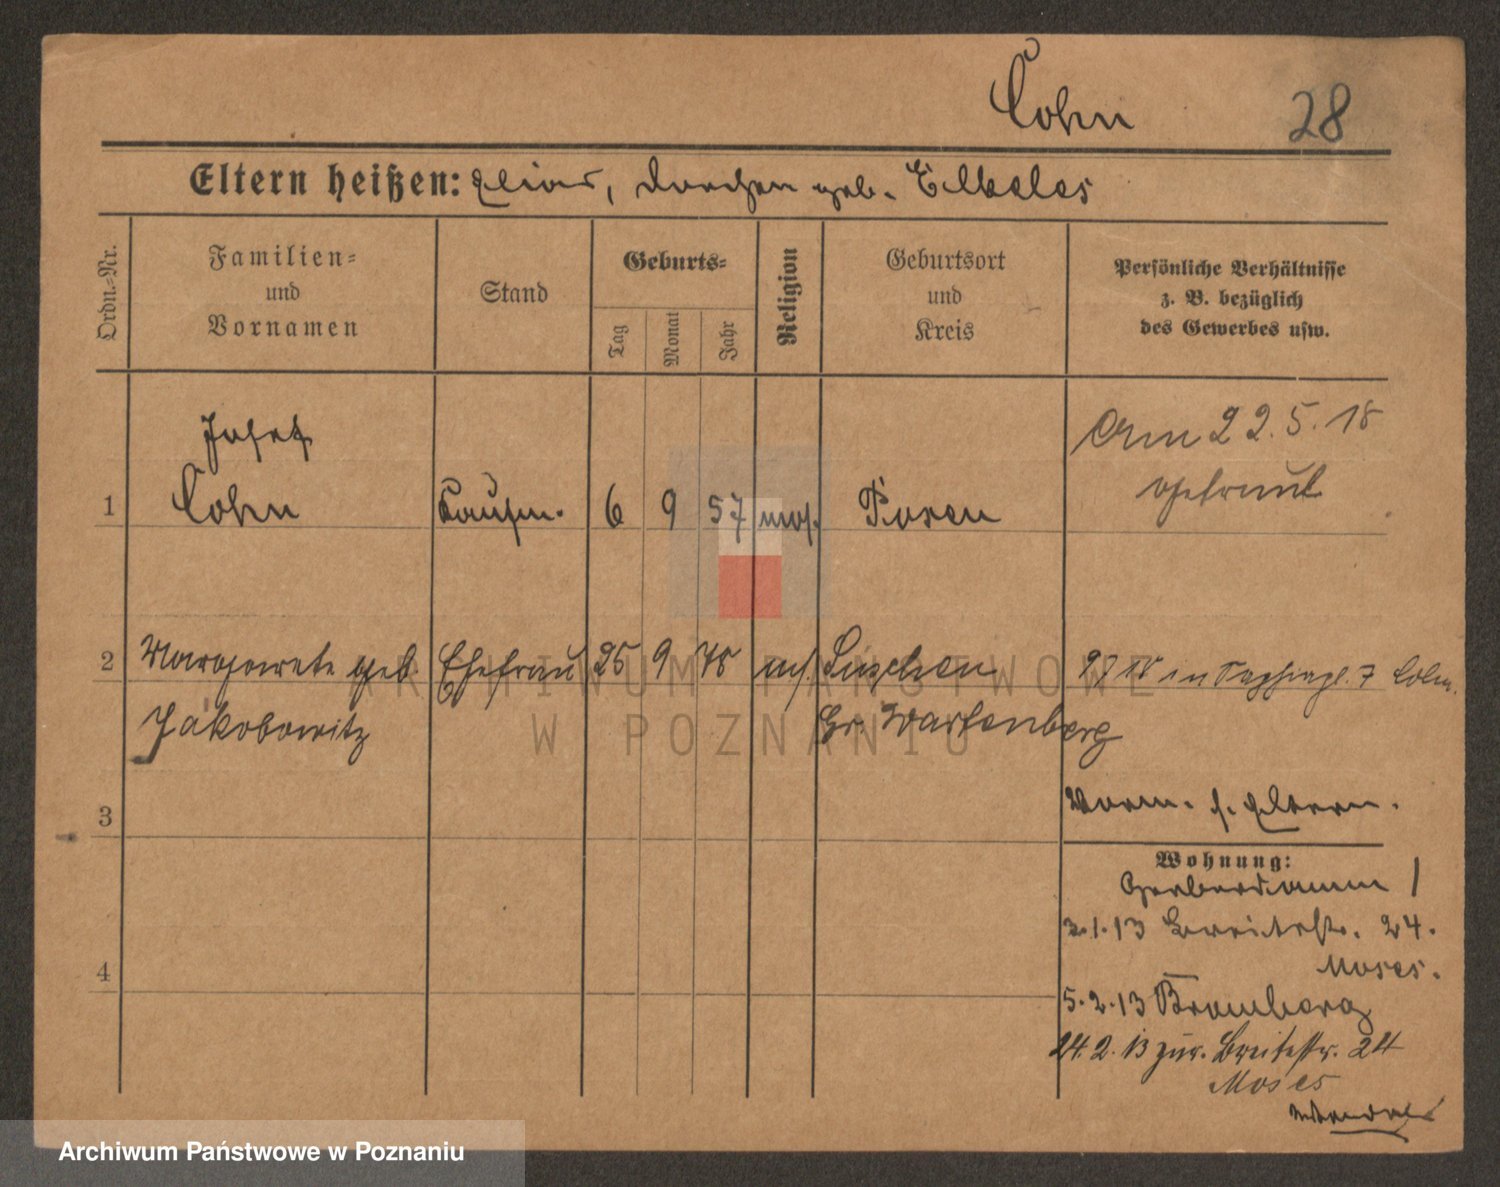 Cohn 28
Eltern heißen: Elias, Dorchen geb. Elkeles
Ordn.-Nr.
Familien-
und
Vornamen
Stand
Geburts-
Tag
Monat
Jahr
Religion
Geburtsort
und
Kreis
Persönliche Verhältnisse
z. B. bezüglich
des Gewerbes usw.
Josef
1 Cohn Kaufm. 6 9 57 mos. Posen
Am 22.5.18
getraut
2 Margarete geb. Ehefrau 25 9 78 m.
Jakobowitz Gr. Wartenberg
in 7 Cohn.
ARCHIWUM PAŃSTWOWE
W POZNANIU
3
Vorm. s. Eltern.
Wohnung:
Gerberdamm 1
3.1.13 Breitestr. 24.
Moses.
4
5.2.13 Bromberg
24.2.13 zur. Breitestr. 24
Moses
Archiwum Państwowe w Poznaniu